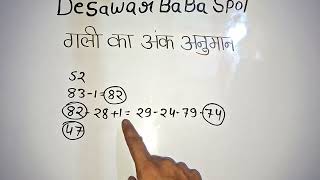 Desawar BaBa Spot
गली का अंक अनुमान
52
83-1=82
82-28+1=29-24-79-74
47